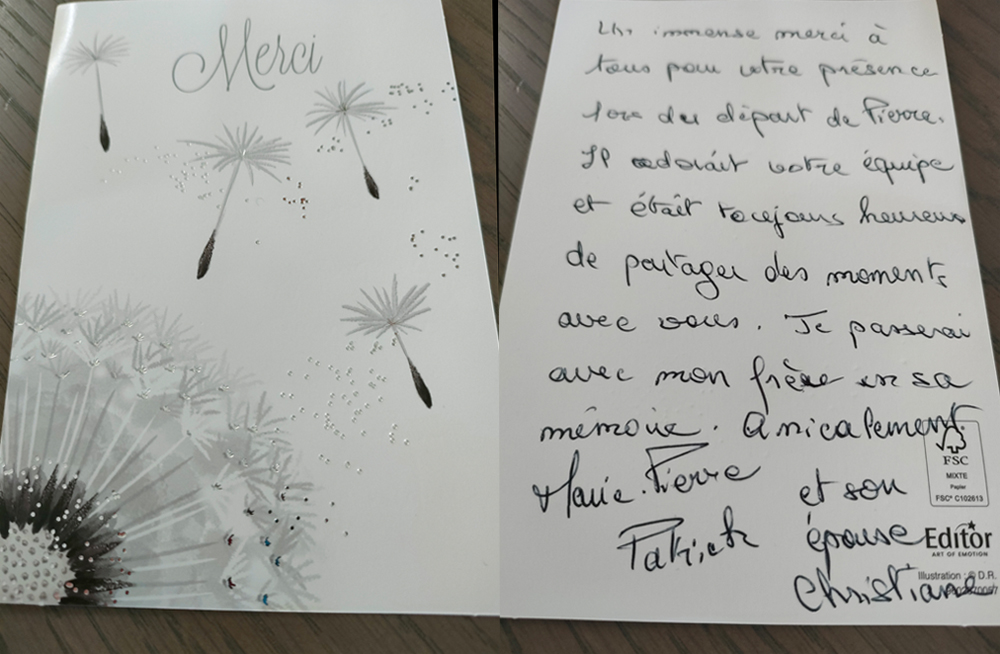 Merci
Un immense merci à
tous pour votre présence
lors du départ de Pierre.
Il adorait votre équipe
et était toujours heureux
de partager des moments
avec vous. Je passerai
avec mon frère en sa
mémoire. Amicalement
Marie-Pierre
et son
Patrick
épouse
Christiane
FSC
MIXTE
Papier
FSC® C102613
Editor
ART OF EMOTION
Illustration : © D.R.